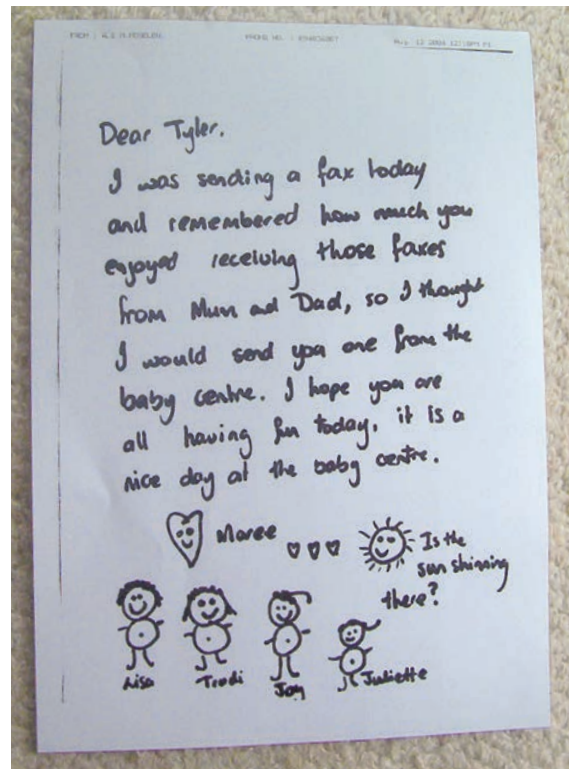 Dear Tyler.
I was sending a fax today
and remembered how much you
enjoyed receiving those faxes
from Mum and Dad, so I thought
I would send you one from the
baby centre. I hope you are
all having fun today, it is a
nice day at the baby centre.
Maree
Is the
sun shinning
there?
Lisa Trudi Joy Juliette